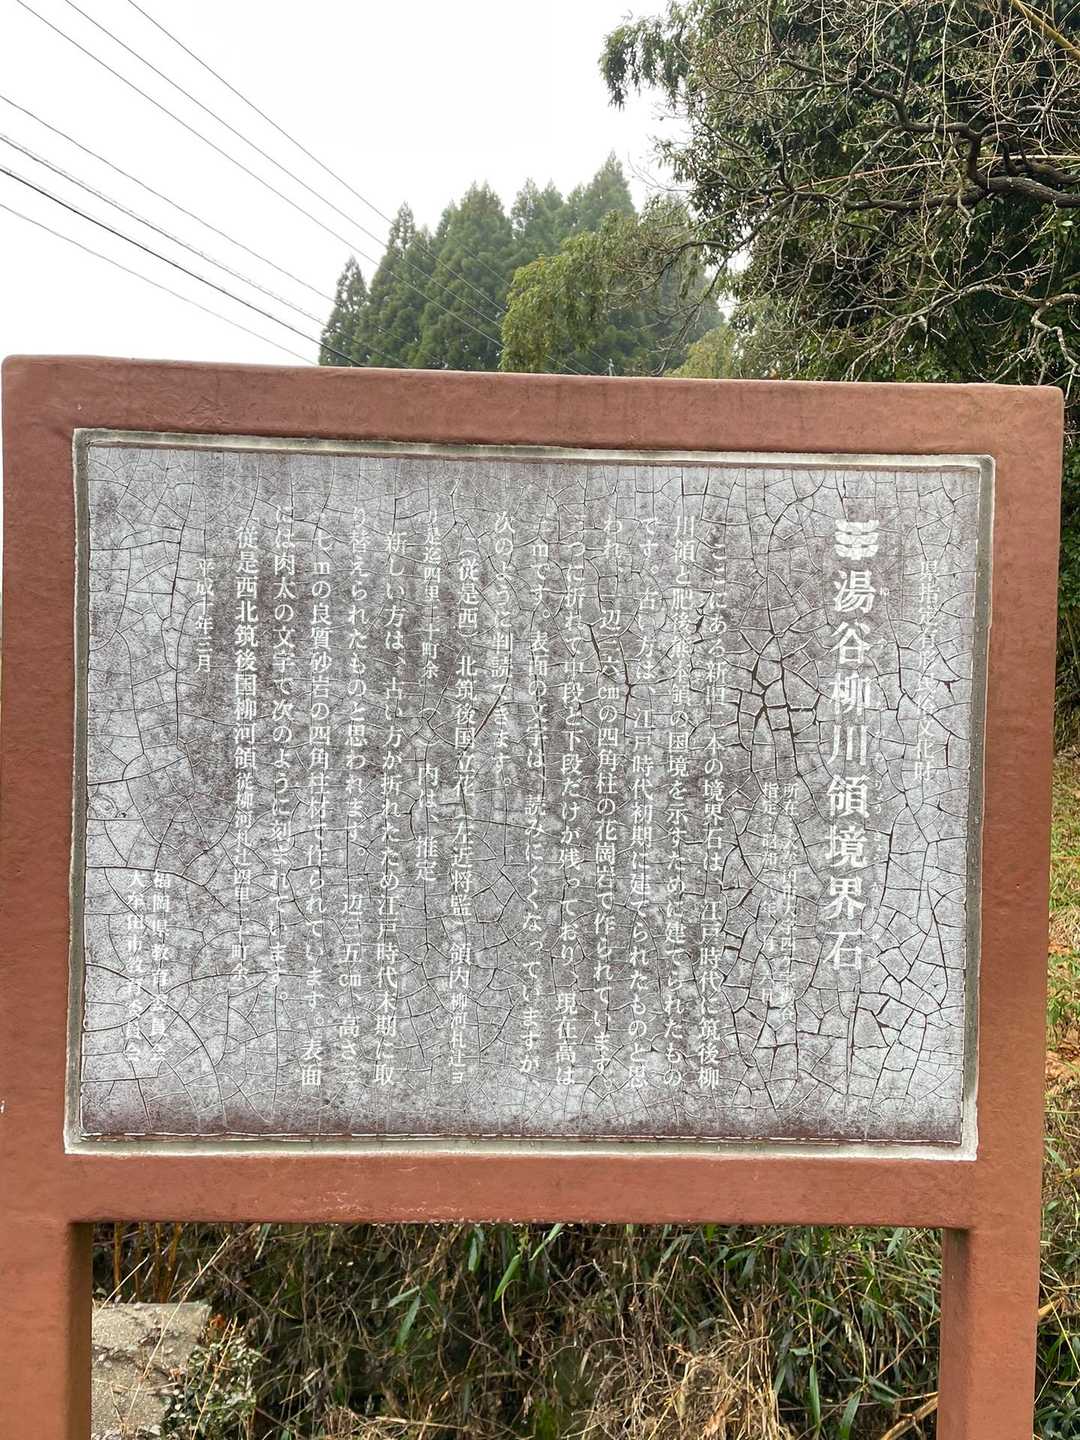 県指定有形民俗文化財
湯谷柳川領境界石
ゆ や りょう きょう
所在 大牟田市大字四ケ
指定 昭和
ここにある新旧二本の境界石は、江戸時代に筑後柳
川領と肥後熊本領の国境を示すために建てられたもの
です。古い方は、江戸時代初期に建てられたものと思
われ、一辺三六㎝の四角柱の花崗岩で作られています。
二つに折れて中段と下段だけが残っており、現在高は
mです。表面の文字は、読みにくくなっていますが、
次のように判読できます。
(従是西)北筑後国立花(左近将監)領内柳河札辻ヨ
リ是迄四里二十町余 ( )内は、推定
新しい方は、古い方が折れたため江戸時代末期に取
り替えられたものと思われます。一辺三五㎝、高さ三
・七mの良質砂岩の四角柱材で作られています。表面
には肉太の文字で次のように刻まれています。
「従是西北筑後国柳河領従柳河札辻四里二十町余」
平成十年三月
福岡県教育委員会
大牟田市教育委員会